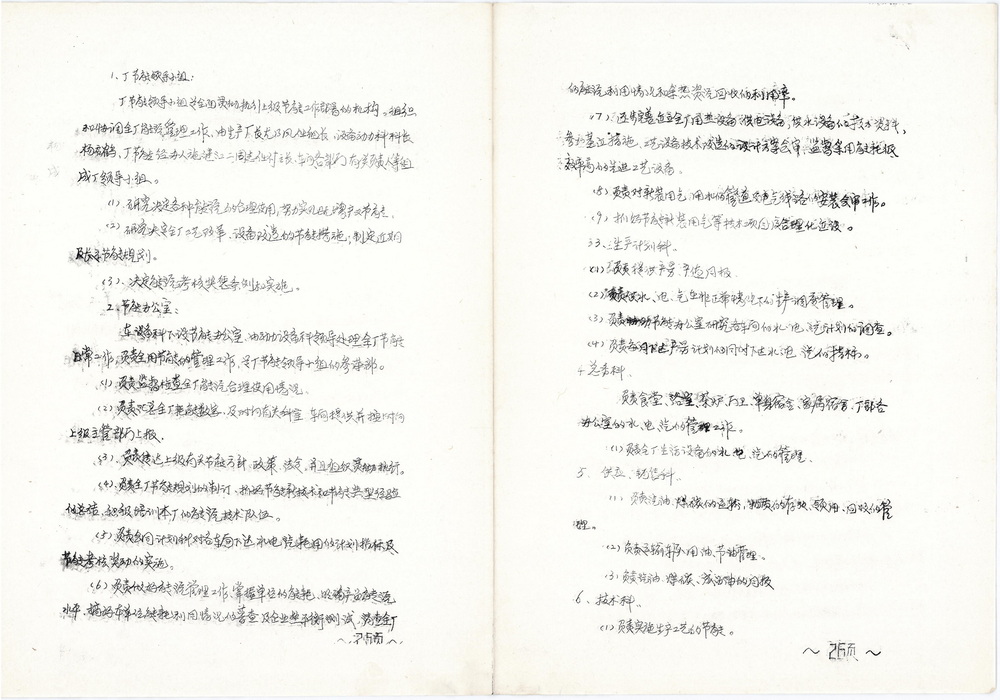 1、厂节能领导小组:
厂节能领导小组是全面贯彻执行上级节能工作部署的机构。组织
和协调全厂能源管理工作,由生产厂长尤凡任组长、设备动力科科长
成厂领导小组。
(1)、研究决定各种能源的合理使用,努力实现增产又节能。
(2)研究决定全厂工艺改革、设备改造的节能措施;制定近期
及长远节能规划。
(3)、决定能源考核奖惩条例和实施。
2、节能办公室:
在设备科下设节能办公室,由动力设备科领导处理全厂节能
日常工作,负责全用节能的管理工作,是厂节能领导小组的参谋部。
(1)负责监督检查全厂能源合理使用情况。
(2)负责汇总全厂耗能数字,及时向有关科室、车间提供并按时向
上级主管部门上报。
(3)、负责传达上级有关节能方针、政策、法令,并且组织贯彻执行。
(4)、负责全厂节能规划的制订、抓好节能新技术和节能典型经验
的总结,积极培训本厂的能源技术队伍。
(5)负责会同计划科对各车间下达水电汽耗用的计划指标及
节能考核奖励的实施。
(6)负责做好能源管理工作,掌握单位的能耗、吸磷产品能源
水平、搞好本单位能耗利用情况的普查及企业热平衡测试,普查全厂
~25页~
的能源利用情况和余热资源回收的利用率。
(7)、逐步完善建立全厂用热设备、供电设备、供水设备的技术资料,
参加基建措施、工艺设备技术改造的设计方案会审,监督采用能耗低
效率高的先进工艺设备。
(8)负责对新装用气、用水的管道及电气线路的安装及审工作。
(9)、抓好节能新装用气等技术项目及合理化建设。
3、生产计划科。
(1)负责提供产量、产值月报
(2)负责水、电、气在非正常情况下的生产调度管理。
(3)负责协助节能办公室研究各车间的水、电、汽计划的调查。
(4)负责每月下达产量计划的同时下达水、电、汽的指标。
4、总务科
负责食堂、浴室、茶炉、门卫、单身宿舍、家属宿舍、厂部各
办公室的水、电、汽的管理工作。
(1)负责全厂生活设备的水、电、汽的管理。
5、供应、销售科。
(1)、负责汽油、煤炭的运转,物质的存放、领油、回收的管
理。
(2)负责运输车队用油、节油管理。
(3)负责汽油、煤碳、成品油的月报
6、技术科、
(1)负责实施生产工艺的节能。
~ 26页 ~